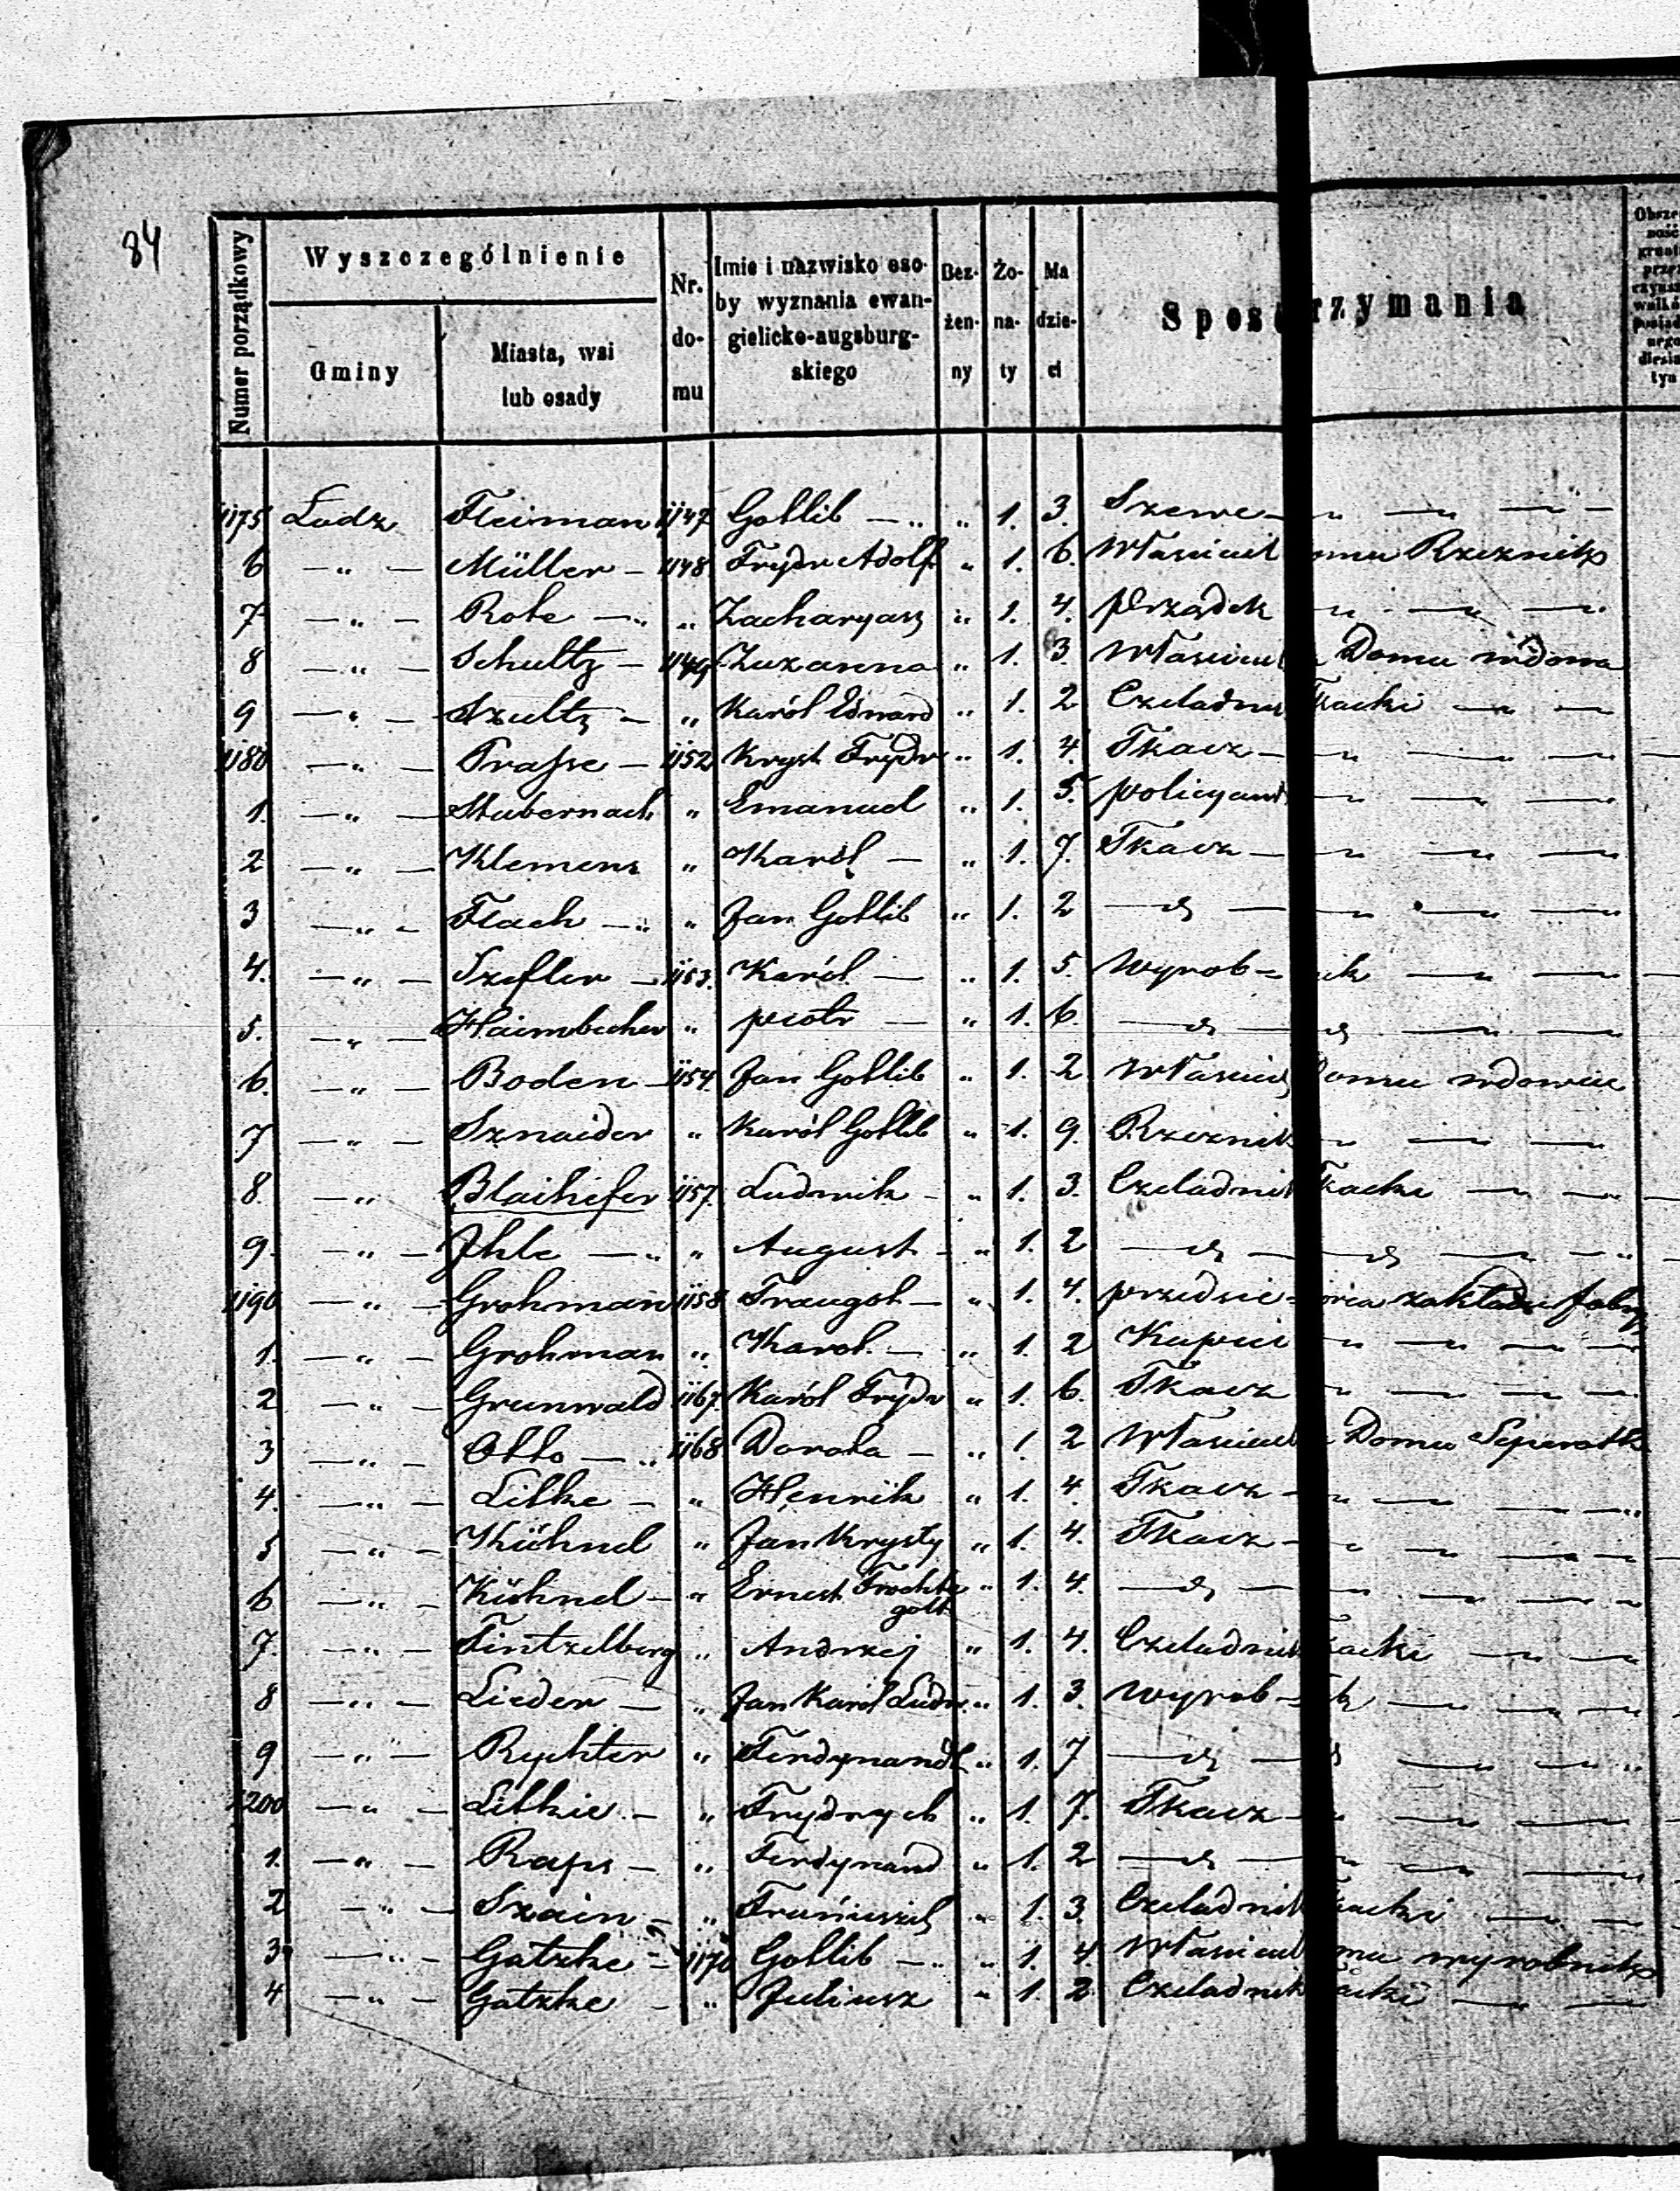 84
Numer porządkowy Wyszczególnienie Nr. domu Imie i nazwisko osoby wyznania ewangielicko-augsburgskiego Bezżenny Żonaty Ma dzieci Spos rzymania
Gminy Miasta, wsi lub osady
1175 Łodz Fleiman 1147 Gottlib — „ „ 1. 3. Szewc — „ — —
6 — „ — Müller — 1148 Frydr Adolf „ 1. 6. Właściciel omu Rzeznik
7 — „ — Rote — „ „ Zacharyasz „ 1. 4. Prządek — — —
8 — „ — Schultz — 1149 Zuzanna „ 1. 3. Właściciel Domu wdowa
9 — „ — Szultz — „ Karól Edward „ 1. 2 Czeladni Tkacki — —
1180 — „ — Prasse — 1152 Kryst Frydr „ 1. 4. Tkacz — — —
1. — „ — Stubernach „ Emanuel „ 1. 5. policyant — — —
2 — „ — Klemens „ Karól — „ 1. 7. Tkacz — — —
3 — „ — Flach — „ „ Jan Gottlib „ 1. 2 — d — — —
4. — „ — Szefler — 1153. Karól — „ 1. 5. Wyrob — ik — —
5. — „ — Haimbucher „ piotr — „ 1. 6. — d — d — —
6. — „ — Boden — 1154. Jan Gottlib „ 1. 2 Właścic Domu wdowiec
7 — „ — Sznaider „ Karól Gottlib „ 1. 9. Rzeznik — — —
8. — „ Blaihifer 1157. Ludwik — „ 1. 3. Czeladnik Tkacki — —
9. — „ — Jhle — „ „ August — „ 1. 2 — d — d — —
1190 — „ — Grohman 1158 Traugot — „ 1. 4. przedsię — orca zakładu fabry
1. — „ — Grohman „ Karol — „ 1. 2 Kupiec — — —
2 — „ — Grunwald 1167. Karól Frydr „ 1. 6. Tkacz — — —
3 — „ — Otto — „ 1168 Dorota — „ 1 2 Właściciel Domu Separatka
4. — „ — Litke — „ Henrik „ 1. 4. Tkacz — — —
5 — „ — Kühnel „ Jan Krysty „ 1. 4. Tkacz — — —
6 — „ — Kühnel — „ Ernest „ 1. 4. — d — — —
7. — „ — Fintzelberg „ Andrzej „ 1. 4. Czeladnik Tkacki — —
8 — „ — Lieder — „ Jan Karól Ludw. „ 1. 3. Wyrob — ik — —
9 — „ — Rychter „ Ferdynand „ 1. 7 — d — d — —
1200 — „ — Litkie — „ Frydrych „ 1. 7. Tkacz — — —
1. — „ — Raps — „ Ferdynand „ 1. 2 — d — — —
2 — „ — Szain — „ Franciszek „ 1. 3. Czeladnik Tkacki — —
3 — „ — Gatzke — 1170 Gottlib — „ „ 1. 4. Właściciel omu wyrobnik
4 — „ — Gatzke — „ Juliusz „ 1. 2 Czeladnik Tkacki — —